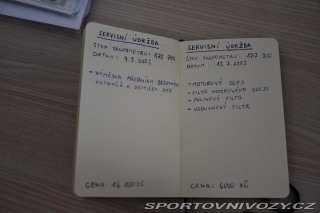 SERVISNÍ ÚDRŽBA
STAV TACHOMETRU: 172 700
DATUM: 9.3.2023
- VÝMĚNA PŘEDNÍCH BRZDOVÝCH
KOTOUČŮ A DESTIČEK ATE
CENA: 16 000 Kč
SERVISNÍ ÚDRŽBA
STAV TACHOMETRU: 172 700
DATUM: 2023
- MOTOROVÝ OLEJ
- FILTR MOTOROVÉHO OLEJE
- PALIVOVÝ FILTR
- VZDUCHOVÝ FILTR
CENA: 6000 Kč
SPORTOVNIVOZY.CZ